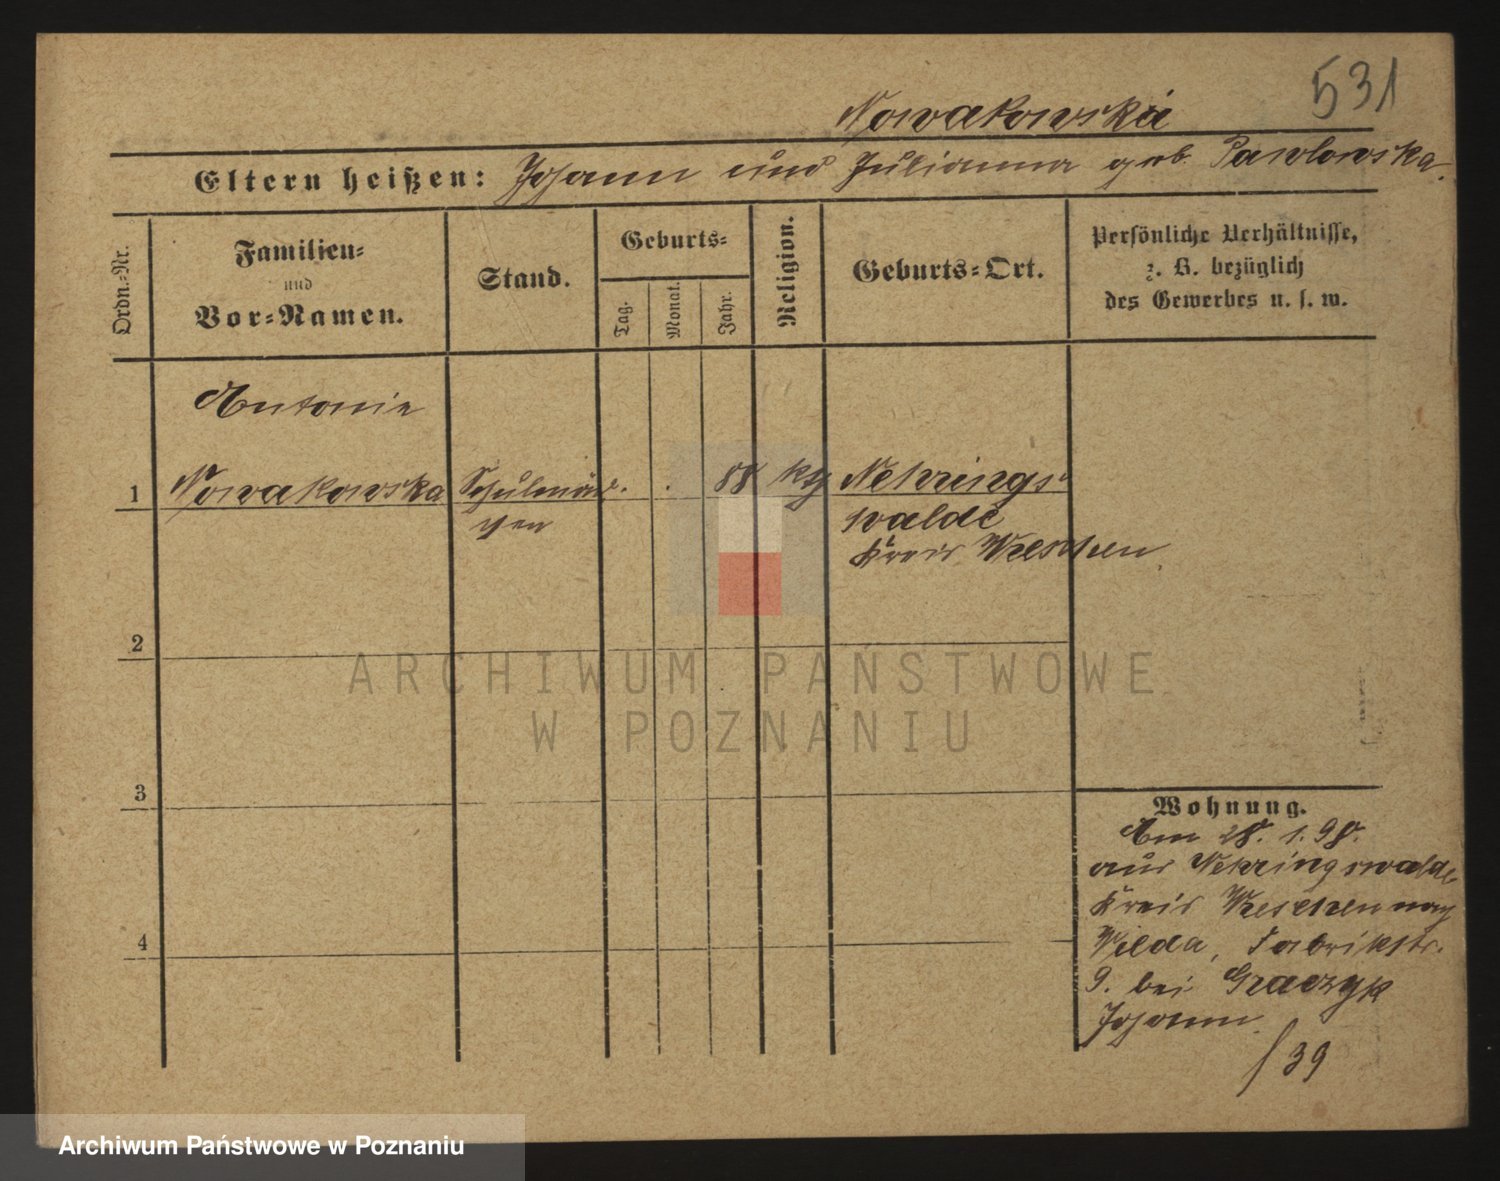 531
Nowakowski
Eltern heißen: Johann und Julianna geb. Pawlowska.
Ordn.-Nr.
Familien-
und
Vor-Namen.
Stand.
Geburts-
Tag.
Monat.
Jahr.
Religion.
Geburts-Ort.
Persönliche Verhältnisse,
z. B. bezüglich
des Gewerbes u. s. w.
Antonie
1 Nowakowska Schulmäd- . . 88 kth Nekrings-
chen walde
Kreis Wreschen.
2
3
4
Wohnung.
Am 28. 1. 98.
aus Nekringswalde
Kreis Wreschen nach
Wilda, Fabrikstr.
9. bei Graczyk
Johann.
/39
ARCHIWUM PAŃSTWOWE
W POZNANIU
Archiwum Państwowe w Poznaniu